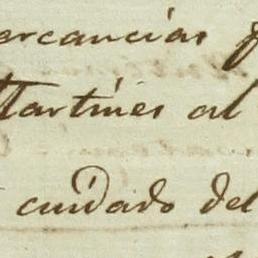 ercancias
Martines al
cuidado del